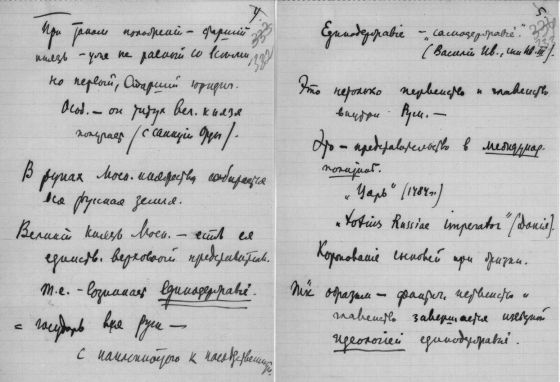 4
При таком положении - старший
князь - уже не равный со всеми,
но первый, старший юридич.
Особ. - он титул вел. князя
получает (с санкции Орды).
В руках Моск. княжества собирается
вся русская земля.
Великий князь Моск. - есть ея
единств. верховный представитель.
т.е. - возникает единодержавiе.
= государь всея Руси -
с наклонностью к наследственности
5
Единодержавiе - "самодержавiе".
(Василий Ив., сын Ив. III)
Это не только первенство и главенство
внутри Руси. -
Это - представительство в международ.
"Царь" (1484 г.)
"totius Russiae imperator" (Данiя).
Коронование сыновей при жизни.
Так образом - фактич. первенство и
главенство завершается
идеологией единодержавiя.